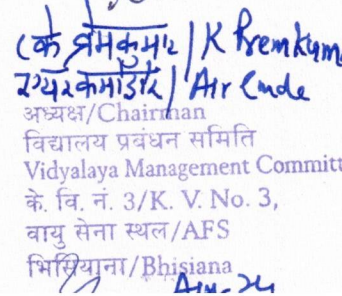 (के प्रेमकुमार / K Premkum
एयर कमोडोर / Air Cmde
अध्यक्ष/Chairman
विद्यालय प्रबंधन समिति
Vidyalaya Management Committ
के. वि. नं. 3/K. V. No. 3,
वायु सेना स्थल/AFS
भिसियाना/Bhisiana